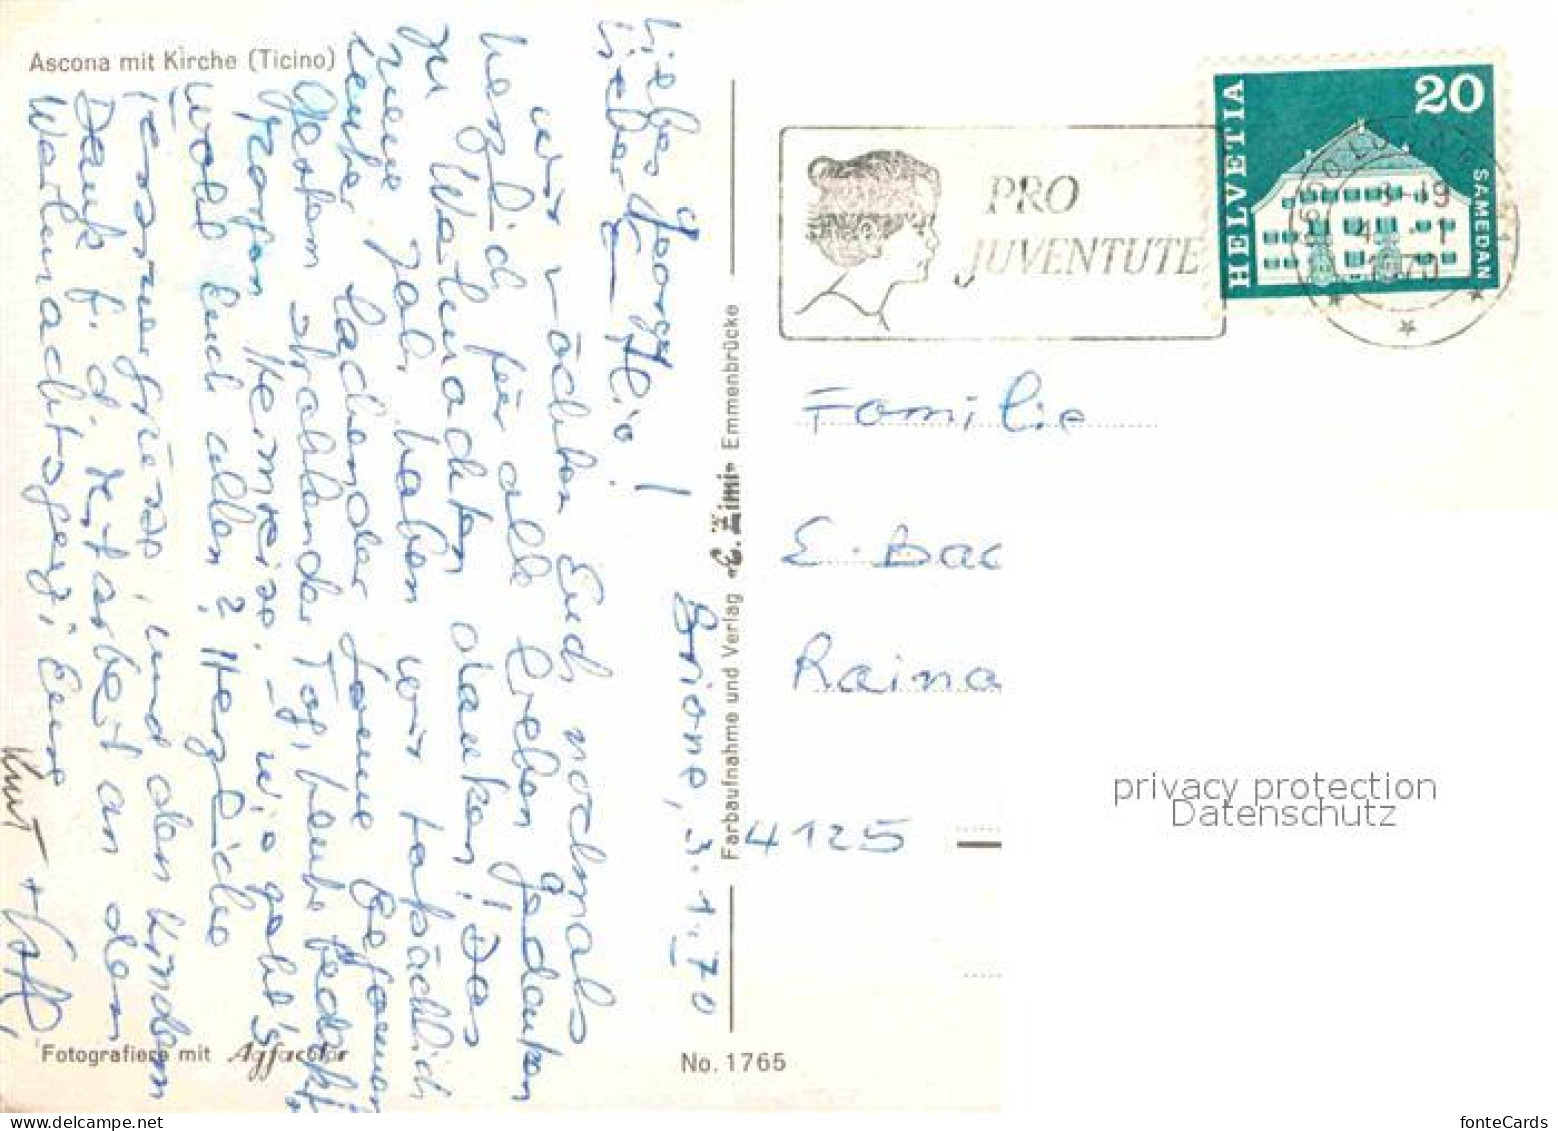 Ascona mit Kirche (Ticino)
Brione, 3.1.70
Liebes
Lieber
wir möchten Euch nochmals
herzlich für alle lieben gedanken
zu Weihnachten danken! Das
neue Jahr haben wir tatsächlich
lachender Sonne begonnen
Gestern strahlender Tag, heute bedeckt
morgen Heimreise. Wie geht's
wohl Euch allen? Herzliche
und den Kindern
Dank f. d. Mitarbeit an den
Weihnachtsgez. Eure
Knut +
Fotografiere mit Agfacolor
Farbaufnahme und Verlag «E. Zimi» Emmenbrücke
No. 1765
PRO
JUVENTUTE
HELVETIA
20
SAMEDAN
-19
4. 1
1970
Familie
E. Bac
Raina
4125
privacy protection
Datenschutz
fonteCards